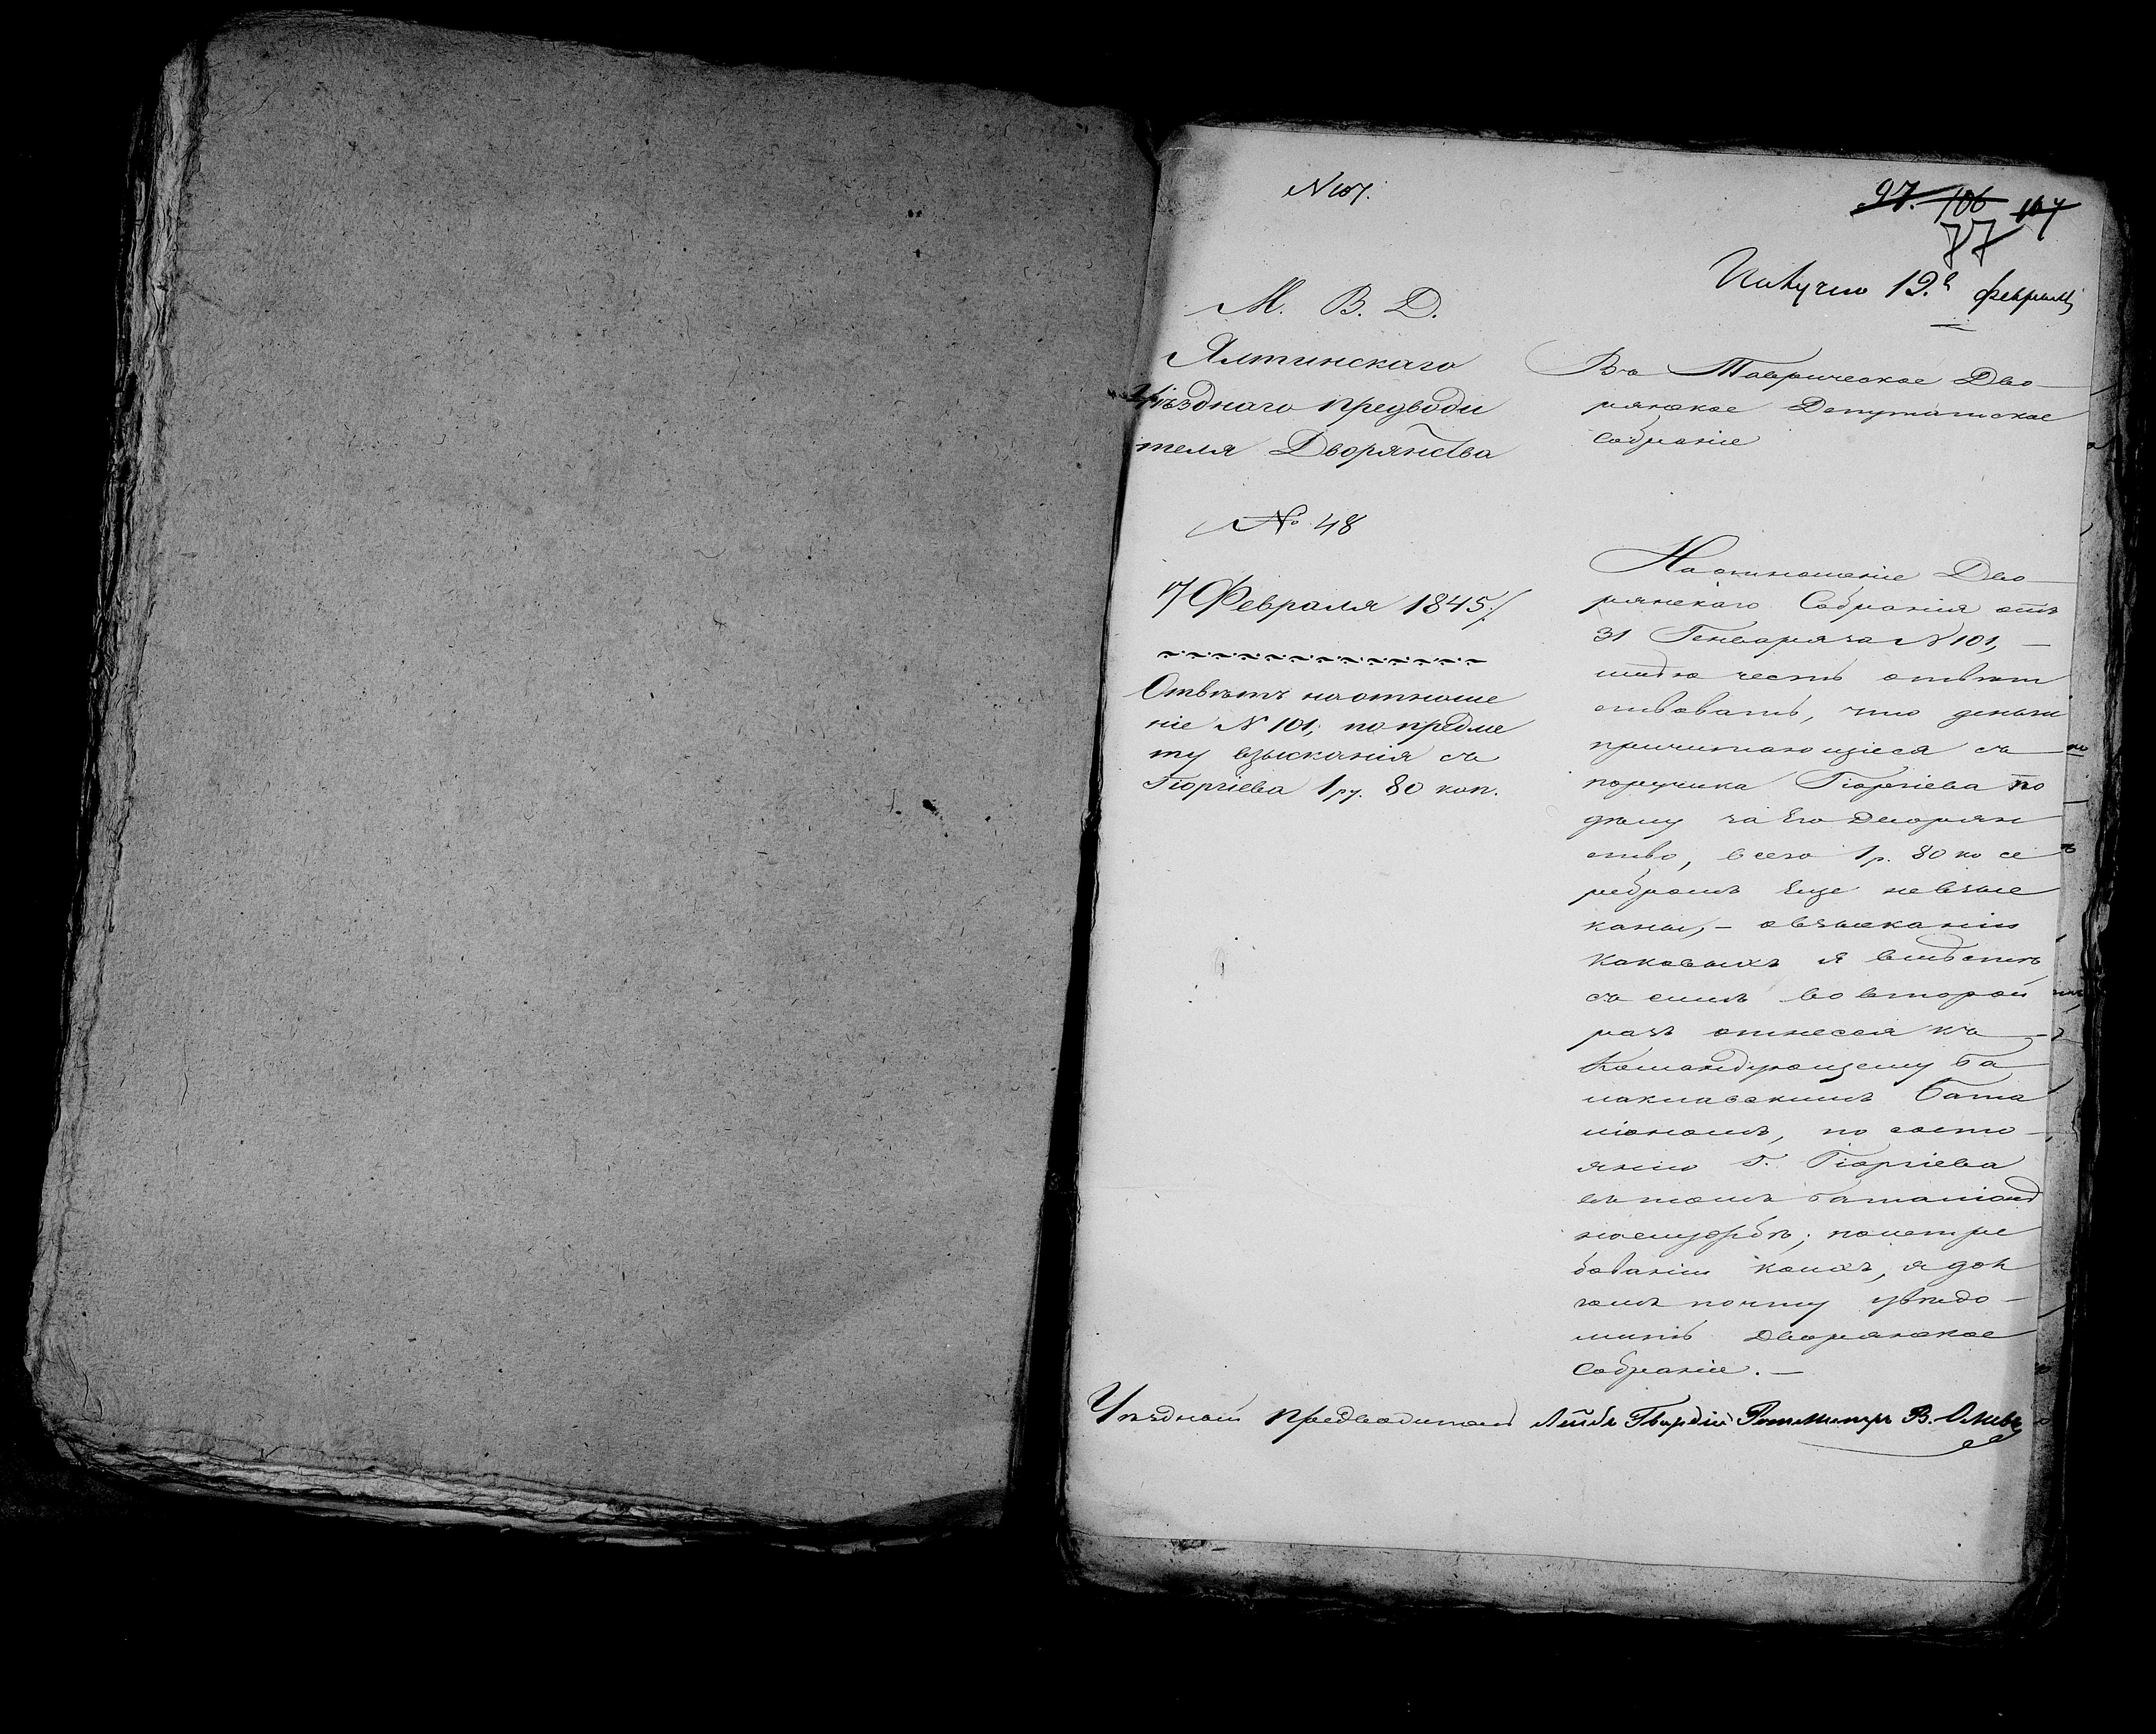 N 107.
97. 106 107
77
Получено 19.го февраля
М. В. Д.
Ялтинскаго
Уѣзднаго предводи
теля Дворянства
№ 48
17 Февраля 1845.
Отвѣтъ на отноше
ніе N 101, по предме
ту взысканія съ
Гіоргіева 1 ру. 80 коп.
Въ Таврическое Дво-
рянское Депутатское
собраніе
На отношеніе Дво-
рянскаго Собранія отъ
31 Генваря за N 101, —
имѣю честь отвѣт
ствовать, что деньги
причитающіеся съ
поручика Гіоргіева по
дѣлу за Его Дворян
ство, всего 1 р. 80 ко се
ребромъ еще невзыс
каны, — о взысканіи
каковыхъ я вмѣстѣ
съ симъ во второй
разъ отнесся къ
Командующему Ба
лаклавскимъ бата
ліономъ, по состо-
янію Г. Гіоргіева
въ томъ баталіонѣ
на службѣ; по истре
бованіи коихъ, я дол
гомъ почту увѣдо-
мить Дворянское
Собраніе. —
Уѣздный предводитель Лейбъ Гвардіи Ротмистръ В. Оливъ